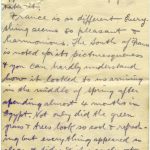 take it.
France is so different. Every
thing seems so pleasant &
harmonious. The South of France
is noted for its picturesqueness
& you can hardly understand
how it looked to us arriving
in the middle of Spring after
spending almost 4 months in
Egypt. Not only did the green
grass & trees look so cool & refresh-
ing but everything appeared as